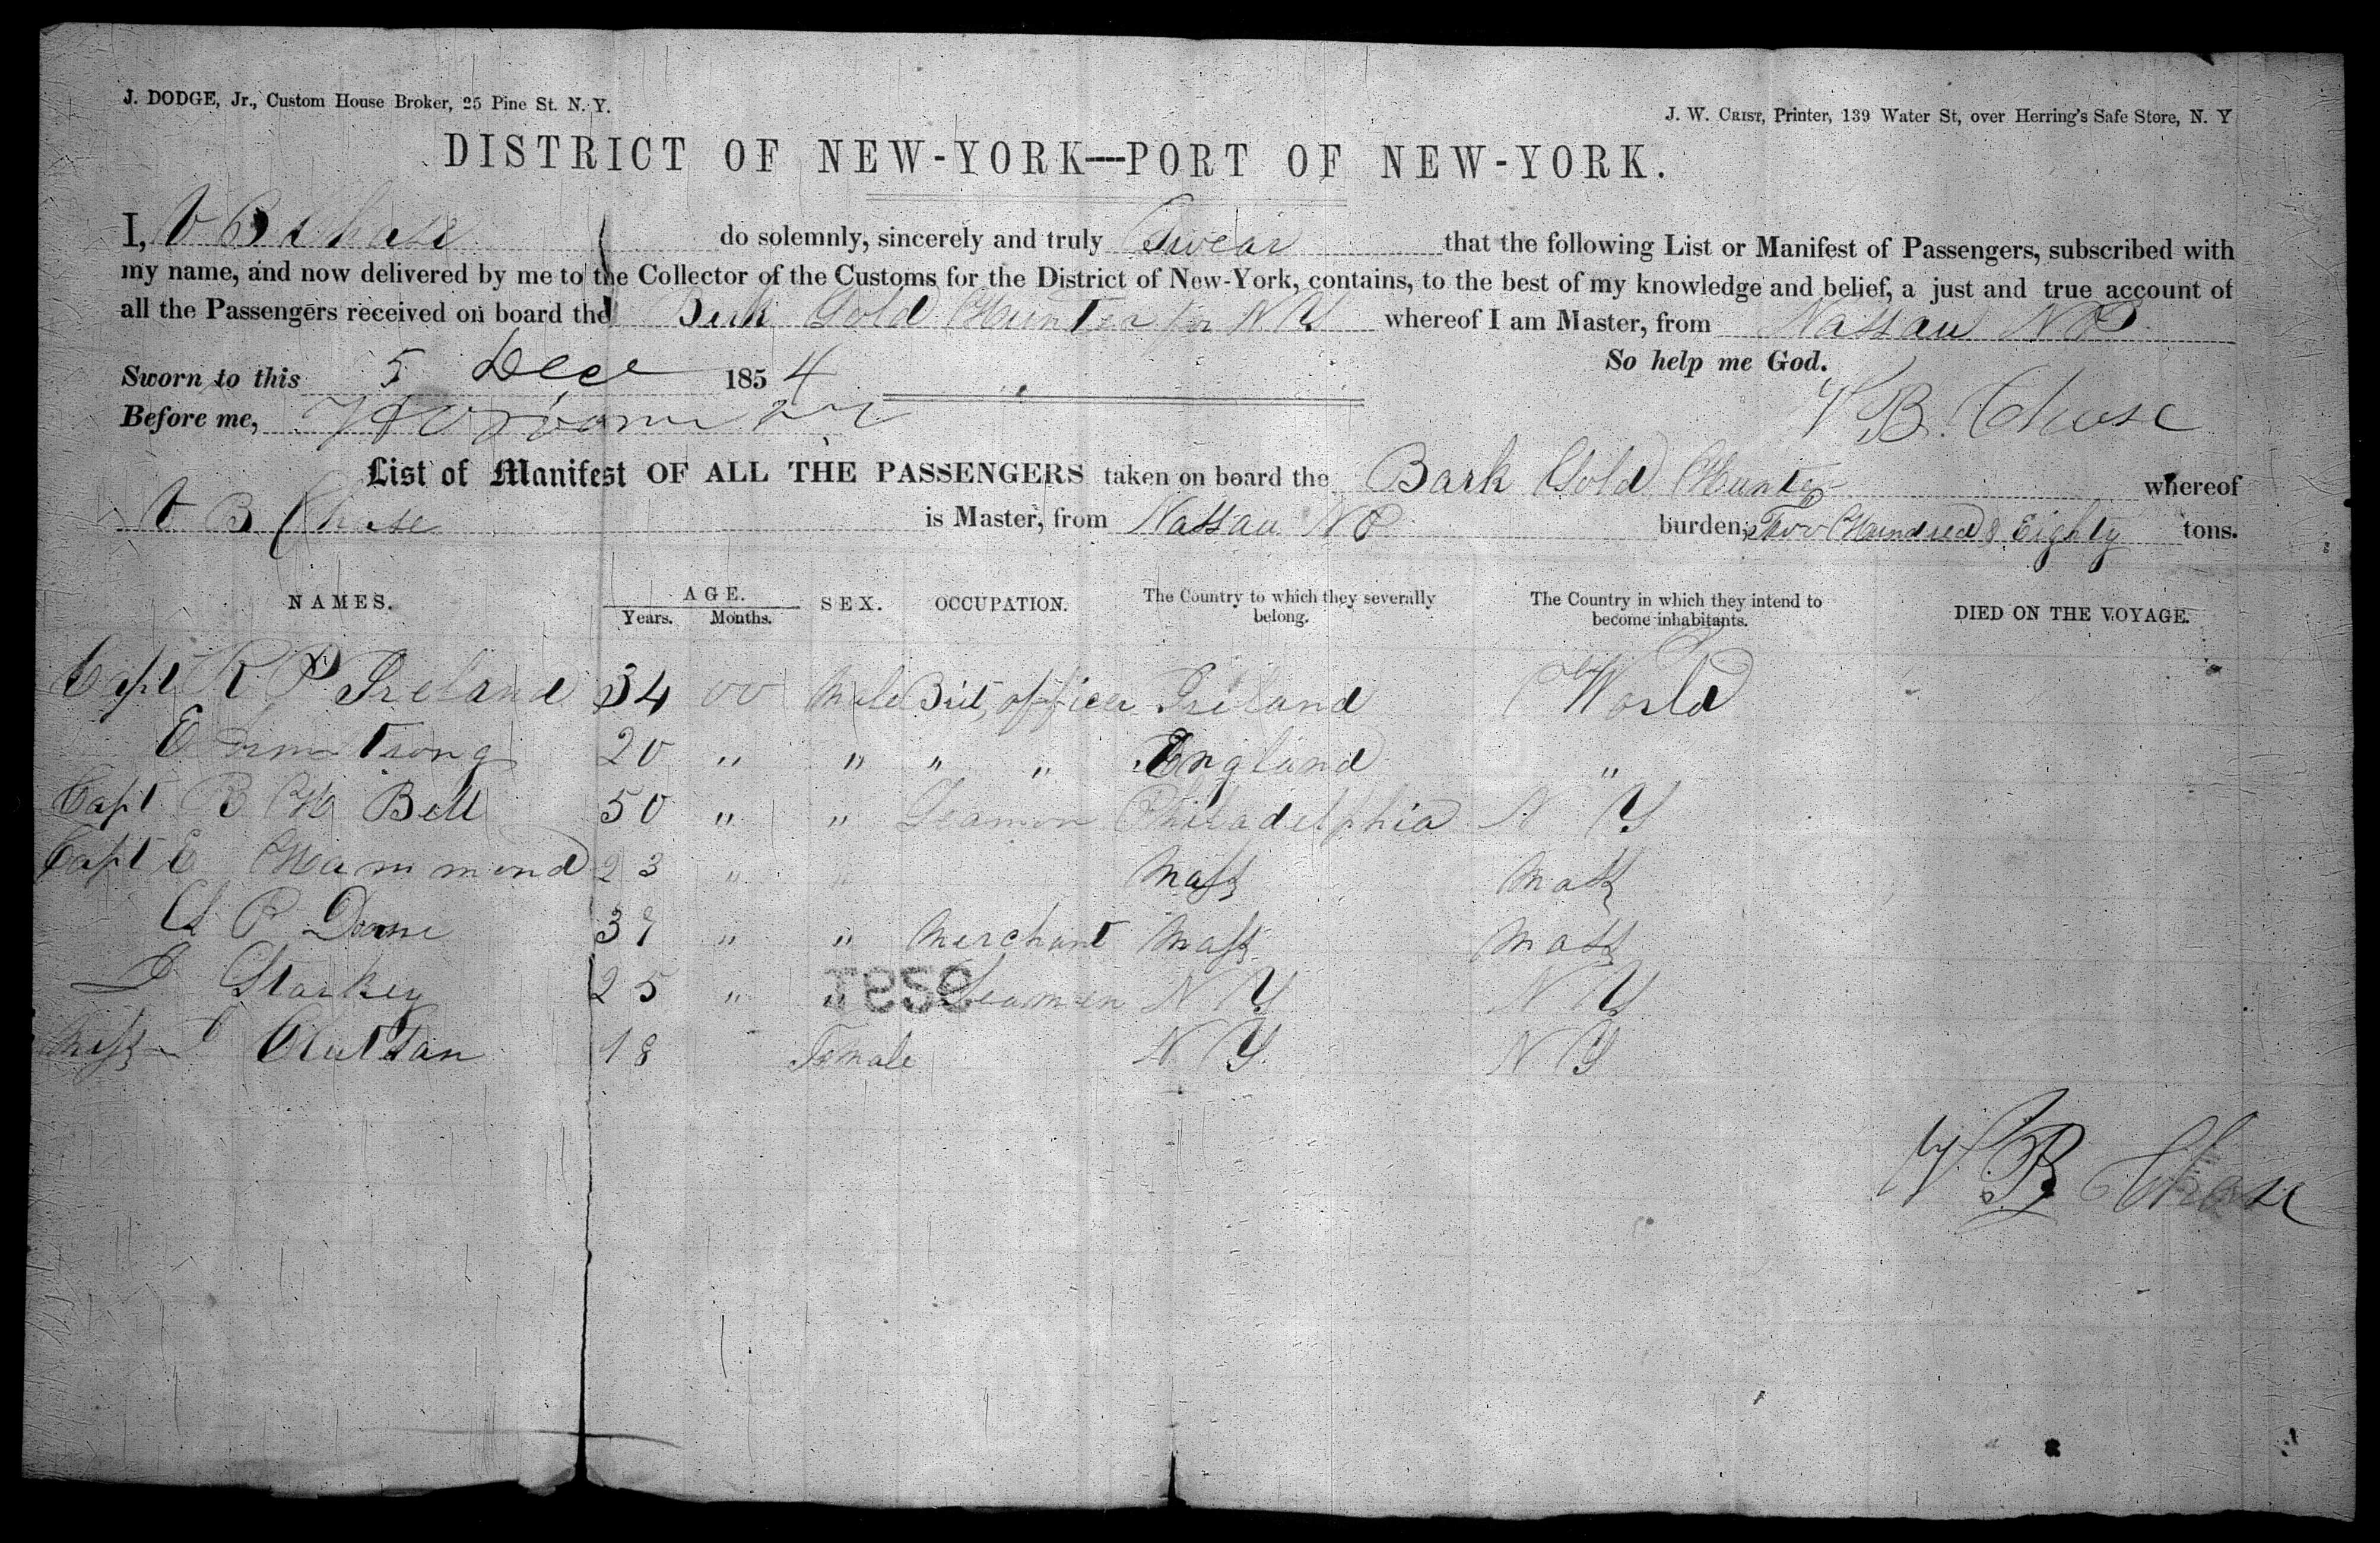 J. DODGE, Jr., Custom House Broker, 25 Pine St. N. Y.
J. W. CRIST, Printer, 139 Water St, over Herring's Safe Store, N. Y
DISTRICT OF NEW-YORK—PORT OF NEW-YORK.
I, V B Chase do solemnly, sincerely and truly Swear that the following List or Manifest of Passengers, subscribed with
my name, and now delivered by me to the Collector of the Customs for the District of New-York, contains, to the best of my knowledge and belief, a just and true account of
all the Passengers received on board the Bark Gold Hunter for N Y whereof I am Master, from Nassau N P
So help me God.
Sworn to this 5 Dece 1854
Before me,
V B Chase
List of Manifest OF ALL THE PASSENGERS taken on board the Bark Gold Hunter whereof
V B Chase is Master, from Nassau N P burden, Two Hundred & Eighty tons.
NAMES. AGE. Years. Months. SEX. OCCUPATION. The Country to which they severally belong. The Country in which they intend to become inhabitants. DIED ON THE VOYAGE.
Capt R P Ireland 34 00 Male Brit, officer Ireland World
E Armstrong 20 " " " " England "
Capt B H Bell 50 " " Seamon Philadelphia N Y
Capt E Hammond 23 " " Mass Mass
P Doane 37 " " Merchant Mass Mass
Starkey 25 " " Seamen N Y N Y
1859
Miss 18 " Female N Y N Y
V B Chase